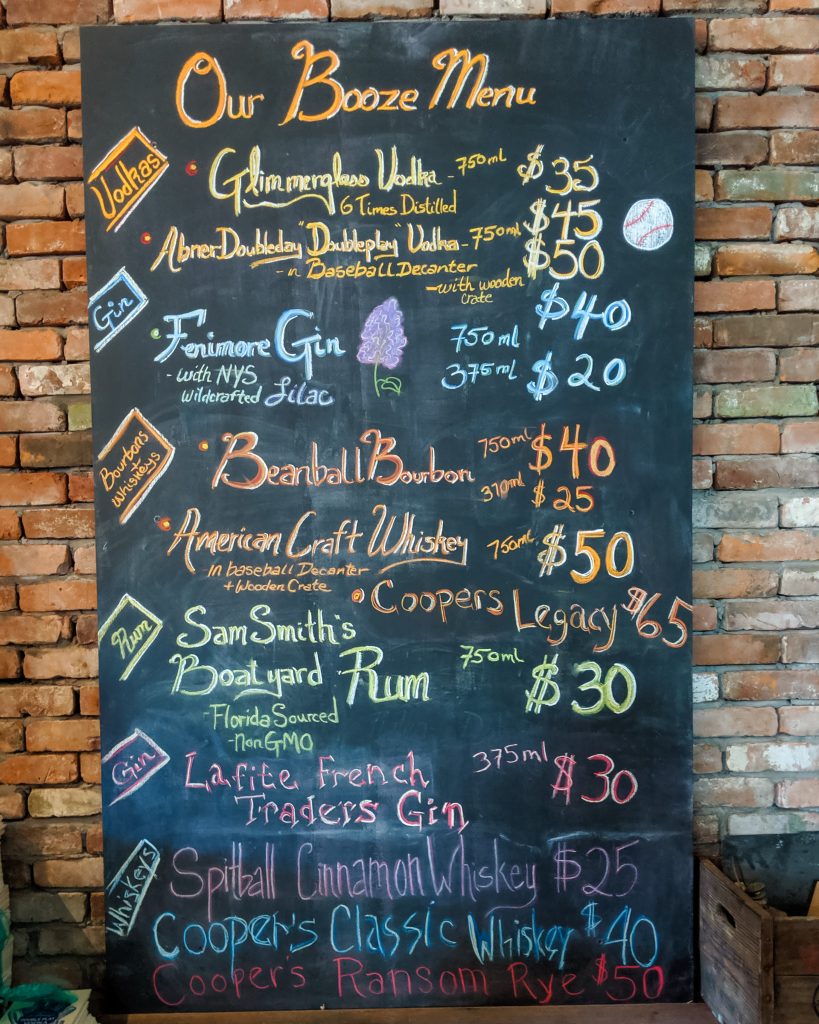 Our Booze Menu
Vodkas
Glimmerglass Vodka - 750ml $35
6 Times Distilled
Abner Doubleday "Doubleplay" Vodka - 750ml $45
- in Baseball Decanter $50
- with wooden
crate
Gin
Fenimore Gin 750ml $40
- with NYS 375ml $20
wildcrafted Lilac
Bourbons + Whiskeys
Beanball Bourbon 750ml $40
$25
American Craft Whiskey 750ml $50
in baseball Decanter
+ Wooden Crate
Coopers Legacy $65
Rum
Sam Smith's
Boatyard Rum 750ml $30
- Florida Sourced
- Non GMO
Gin
Lafite French 375ml $30
Traders Gin
Whiskeys
Spitball Cinnamon Whiskey $25
Cooper's Classic Whiskey $40
Cooper's Ransom Rye $50